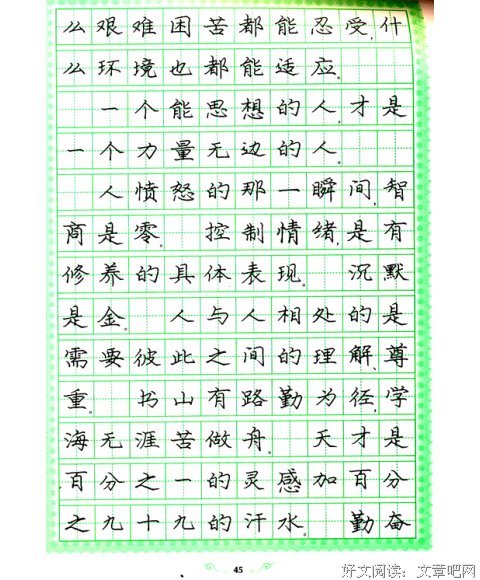 么艰难困苦都能忍受,什
么环境也都能适应。
一个能思想的人,才是
一个力量无边的人。
人愤怒的那一瞬间,智
商是零。 控制情绪,是有
修养的具体表现。 沉默
是金。 人与人相处的是
需要彼此之间的理解、尊
重。 书山有路勤为径,学
海无涯苦做舟。 天才是
百分之一的灵感加百分
之九十九的汗水。 勤奋
45
好文阅读：文章吧网